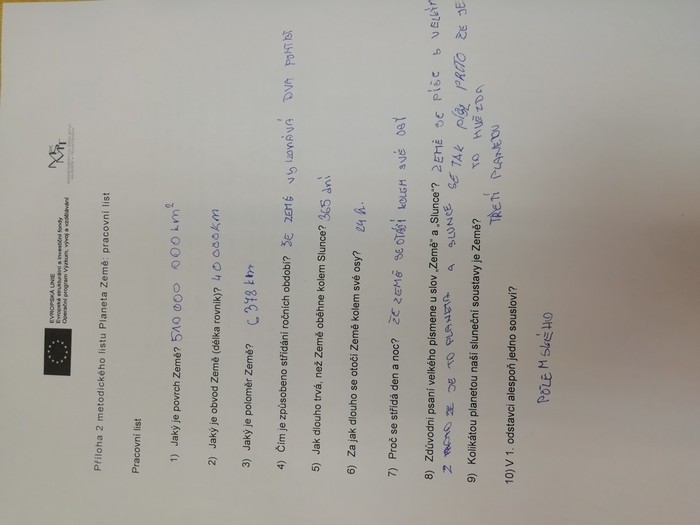 EVROPSKÁ UNIE
Evropské strukturální a investiční fondy
Operační program Výzkum, vývoj a vzdělávání
Příloha 2 metodického listu Planeta Země: pracovní list
Pracovní list
1) Jaký je povrch Země? 510 000 000 km²
2) Jaký je obvod Země (délka rovník)? 40 000KM
3) Jaký je poloměr Země? 6 378 km
4) Čím je způsobeno střídání ročních období? ŽE ZEMĚ VYKONÁVÁ DVA
5) Jak dlouho trvá, než Země oběhne kolem Slunce? 365 dní
6) Za jak dlouho se otočí Země kolem své osy? 24 h.
7) Proč se střídá den a noc? ŽE ZEMĚ SE OTÁČÍ KOLEM SVÉ OSY
8) Zdůvodni psaní velkého písmene u slov „Země" a „Slunce"? ZEMĚ SE PÍŠE S
ŽE JE TO PLANETA A SLUNCE SE TAK PÍŠE PROTO ŽE JE
TO HVĚZDA
9) Kolikátou planetou naší sluneční soustavy je Země? TŘETÍ PLANETOU
10) V 1. odstavci alespoň jedno sousloví?